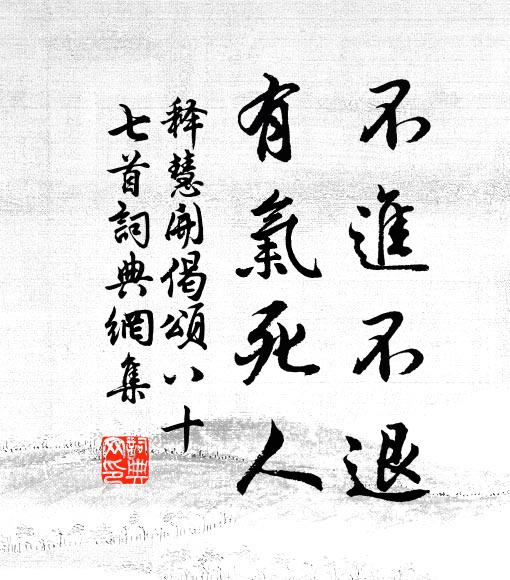 不進不退
有氣死人
釋慧開偈頌八十
七首詞典網集
詞典
网印